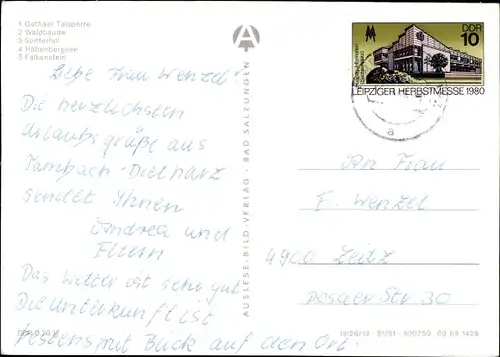 1 Gothaer Talsperre
2 Waldbaude
3 Spitterfall
4 Höllenbergsee
5 Falkenstein
Liebe Frau Wenzel!
Die herzlichsten
Urlaubsgrüße aus
Tambach-Dietharz
sendet Ihnen
Andrea und
Eltern
Das Wetter ist sehr gut
Die Unterkunft ist
bestens mit Blick auf den Ort.
DDR 0,20 M
AUSLESE-BILD-VERLAG · BAD SALZUNGEN
A
DDR
10
LEIPZIGER HERBSTMESSE 1980
a
An Frau
F. Wenzel
4900 Zeitz
Posaer Str 30
IV/26/13 51/81 900750 09 09 1426